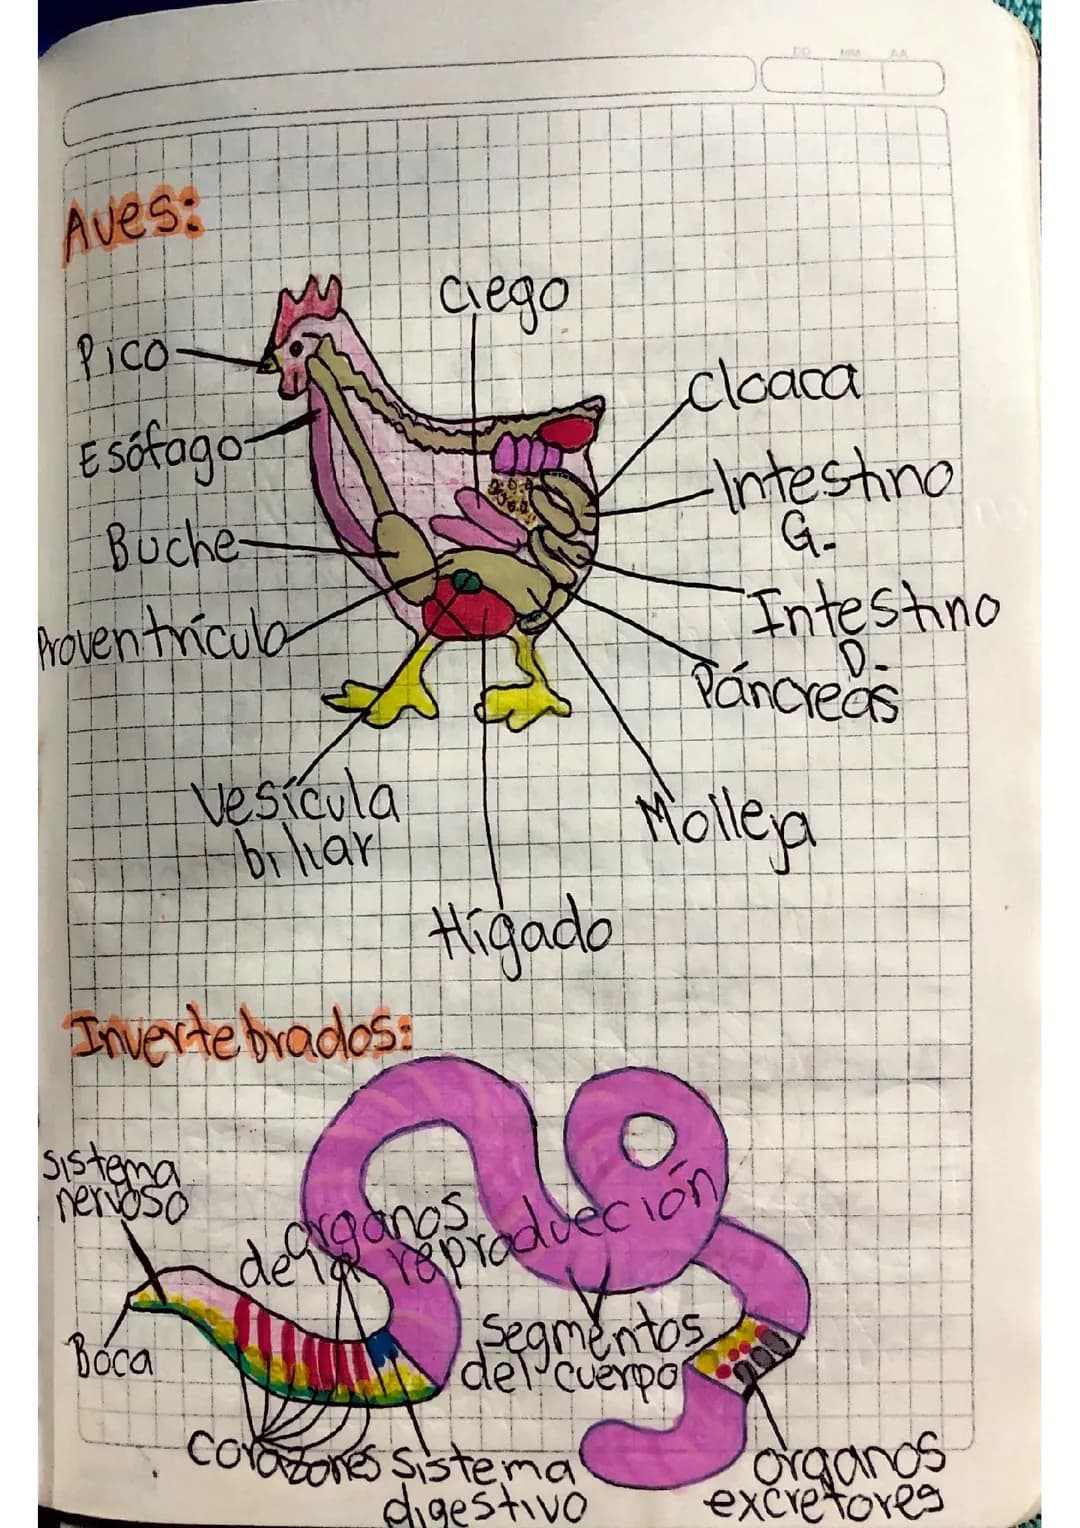 DD MM AA
Aves:
Ciego
Pico
Cloaca
Esófago
Intestino
G.
Buche
Intestino
D.
Proventrículo
Páncreas
Vesícula
biliar
Molleja
Hígado
Invertebrados:
sistema
nervoso
organos
de la reproducción
segmentos
del cuerpo
Boca
corazones
sistema
digestivo
organos
excretores